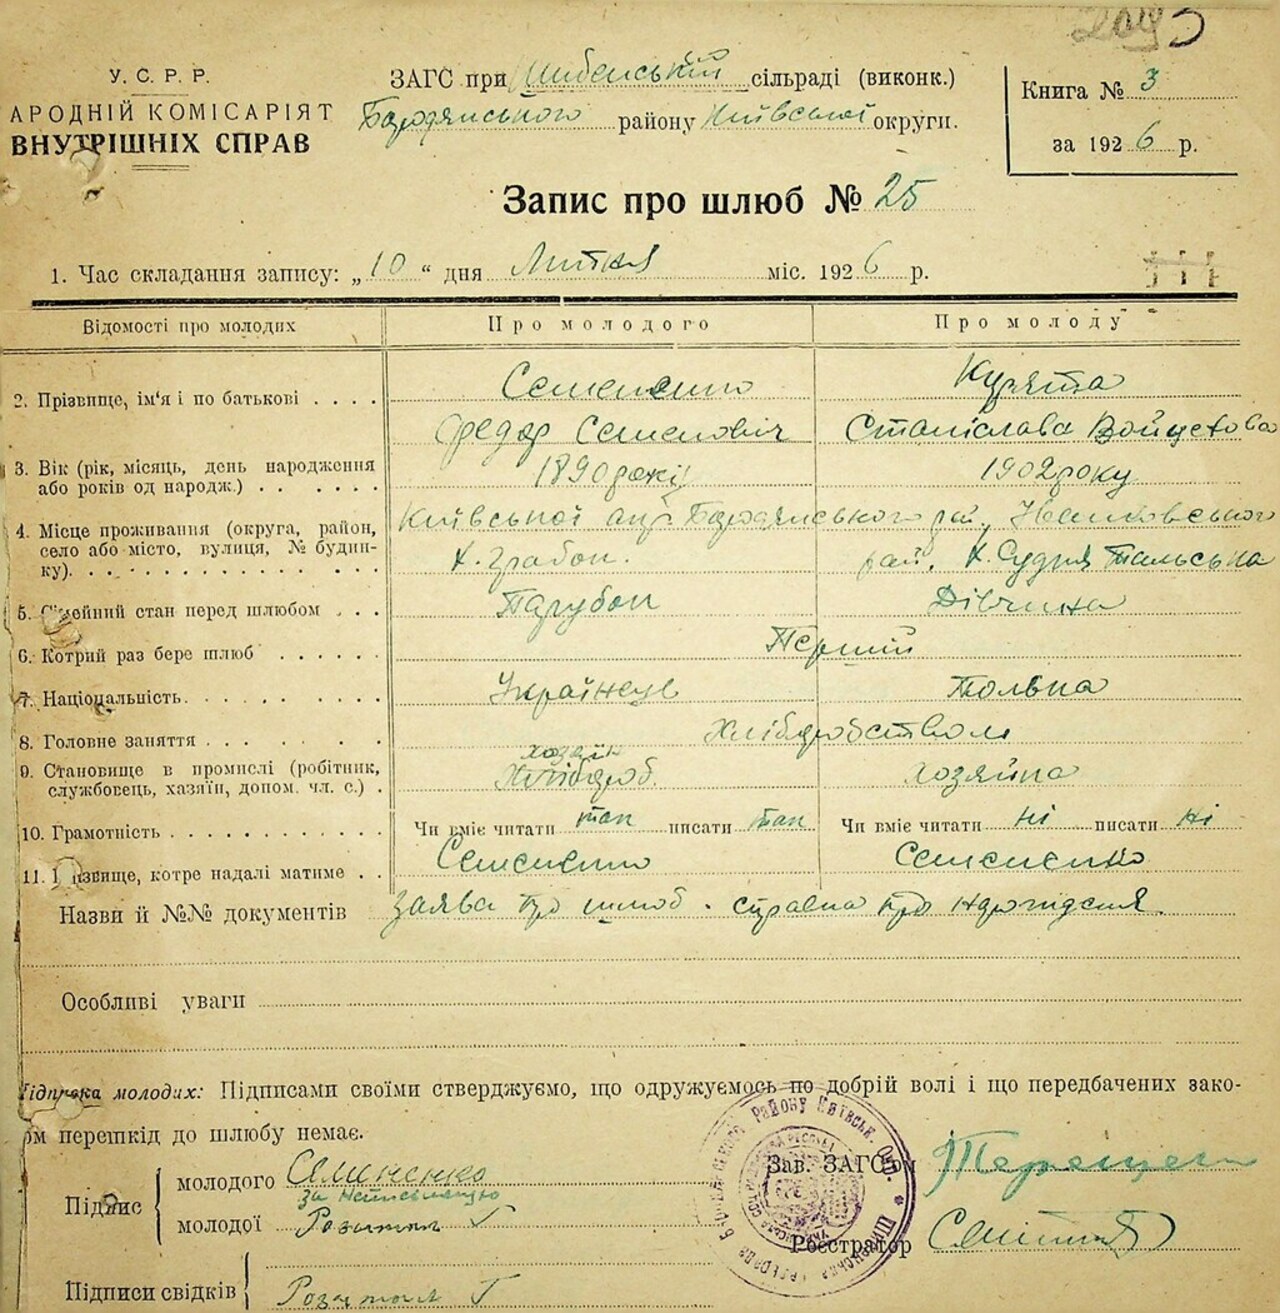 У. С. Р. Р.
АРОДНІЙ КОМІСАРІЯТ
ВНУТРІШНІХ СПРАВ
ЗАГС при Шибенській сільраді (виконк.)
Бородянського району Київської округи.
Книга № 3
за 1926 р.
Запис про шлюб № 25
1. Час складання запису: „10“ дня Липня міс. 1926 р.
Відомості про молодих Про молодого Про молоду
2. Прізвище, ім'я і по батькові . . . . Семененко Курята
Федор Семенович Станіслава Войцехова
3. Вік (рік, місяць, день народження або років од народж.) . . . . . . 1890 року 1902 року
4. Місце проживання (округа, район, село або місто, вулиця, № будинку). Київської окр. Бородянського рай., х. Грабон. рай. х. Рудня Тальська
5. Сімейний стан перед шлюбом . . . Парубок Дівчина
6. Котрий раз бере шлюб . . . . . . Перший
7. Національність. . . . . . . . . . Українець Полька
8. Головне заняття . . . . . . . Хліборобством
9. Становище в промислі (робітник, службовець, хазяїн, допом. чл. с.) . хозяїн Хлібороб. хозяйка
10. Грамотність . . . . . . . . . . . Чи вміє читати так писати так Чи вміє читати ні писати ні
11. звище, котре надалі матиме . . Семененко Семененко
Назви й №№ документів заява про шлюб. справка про народження.
Особливі уваги
ідписка молодих: Підписами своїми стверджуємо, що одружуємось по добрій волі і що передбачених зако-
ом перешкід до шлюбу немає.
Підпис
молодого Семиненко
за неписьменую
молодої
Підписи свідків
Зав. ЗАГС'ом
Реєстратор